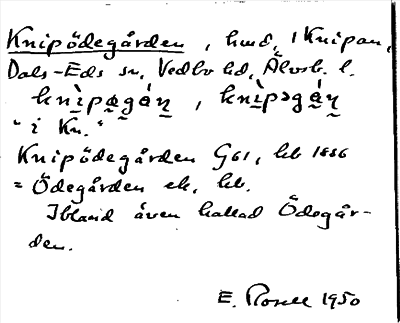 Knipödegården, hmd, i Knipan,
Dals-Eds sn, Vedbo hd, Älvsb. l.
knìpa̱gá̱ṉ, knìpəgá̱ṉ
"i Kn."
Knipödegården G61, hb 1886
= Ödegården ek, hb.
Ibland även kallad Ödegår-
den.
E. Rosell 1950